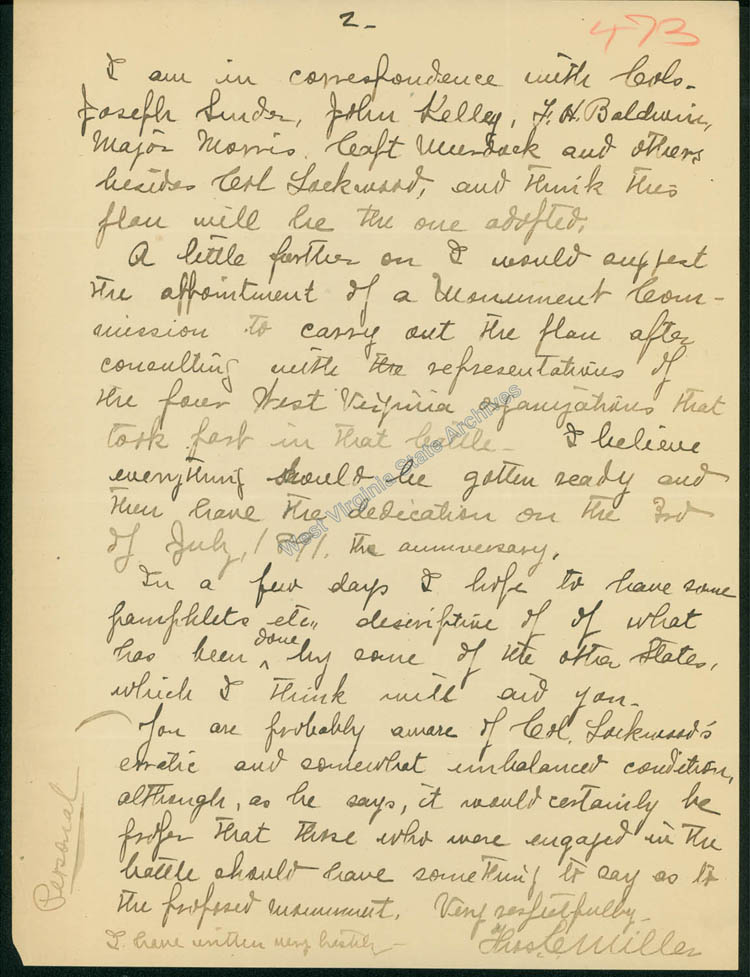 2-
473
I am in correspondence with Cols.
Joseph Snider, John Kelley, F. H. Baldwin,
Major Morris, Capt Murdock and others
besides Col Lockwood, and think this
plan will be the one adopted.
A little further on I would suggest
the appointment of a Monument Com-
mission to carry out the plan after
consulting with the representatives of
the four West Virginia organizations that
took part in that battle. I believe
everything should be gotten ready and
then have the dedication on the 3rd
of July, 1891, the anniversary.
In a few days I hope to have some
pamphlets etc., descriptive of of what
has been done by some of the other States,
which I think will aid you.
You are probably aware of Col. Lockwood's
erratic and somewhat unbalanced condition,
although, as he says, it would certainly be
proper that those who were engaged in the
battle should have something to say as to
the proposed monument. Very respectfully-
Thos. C. Miller
I have written very hastily-
Personal
West Virginia State Archives